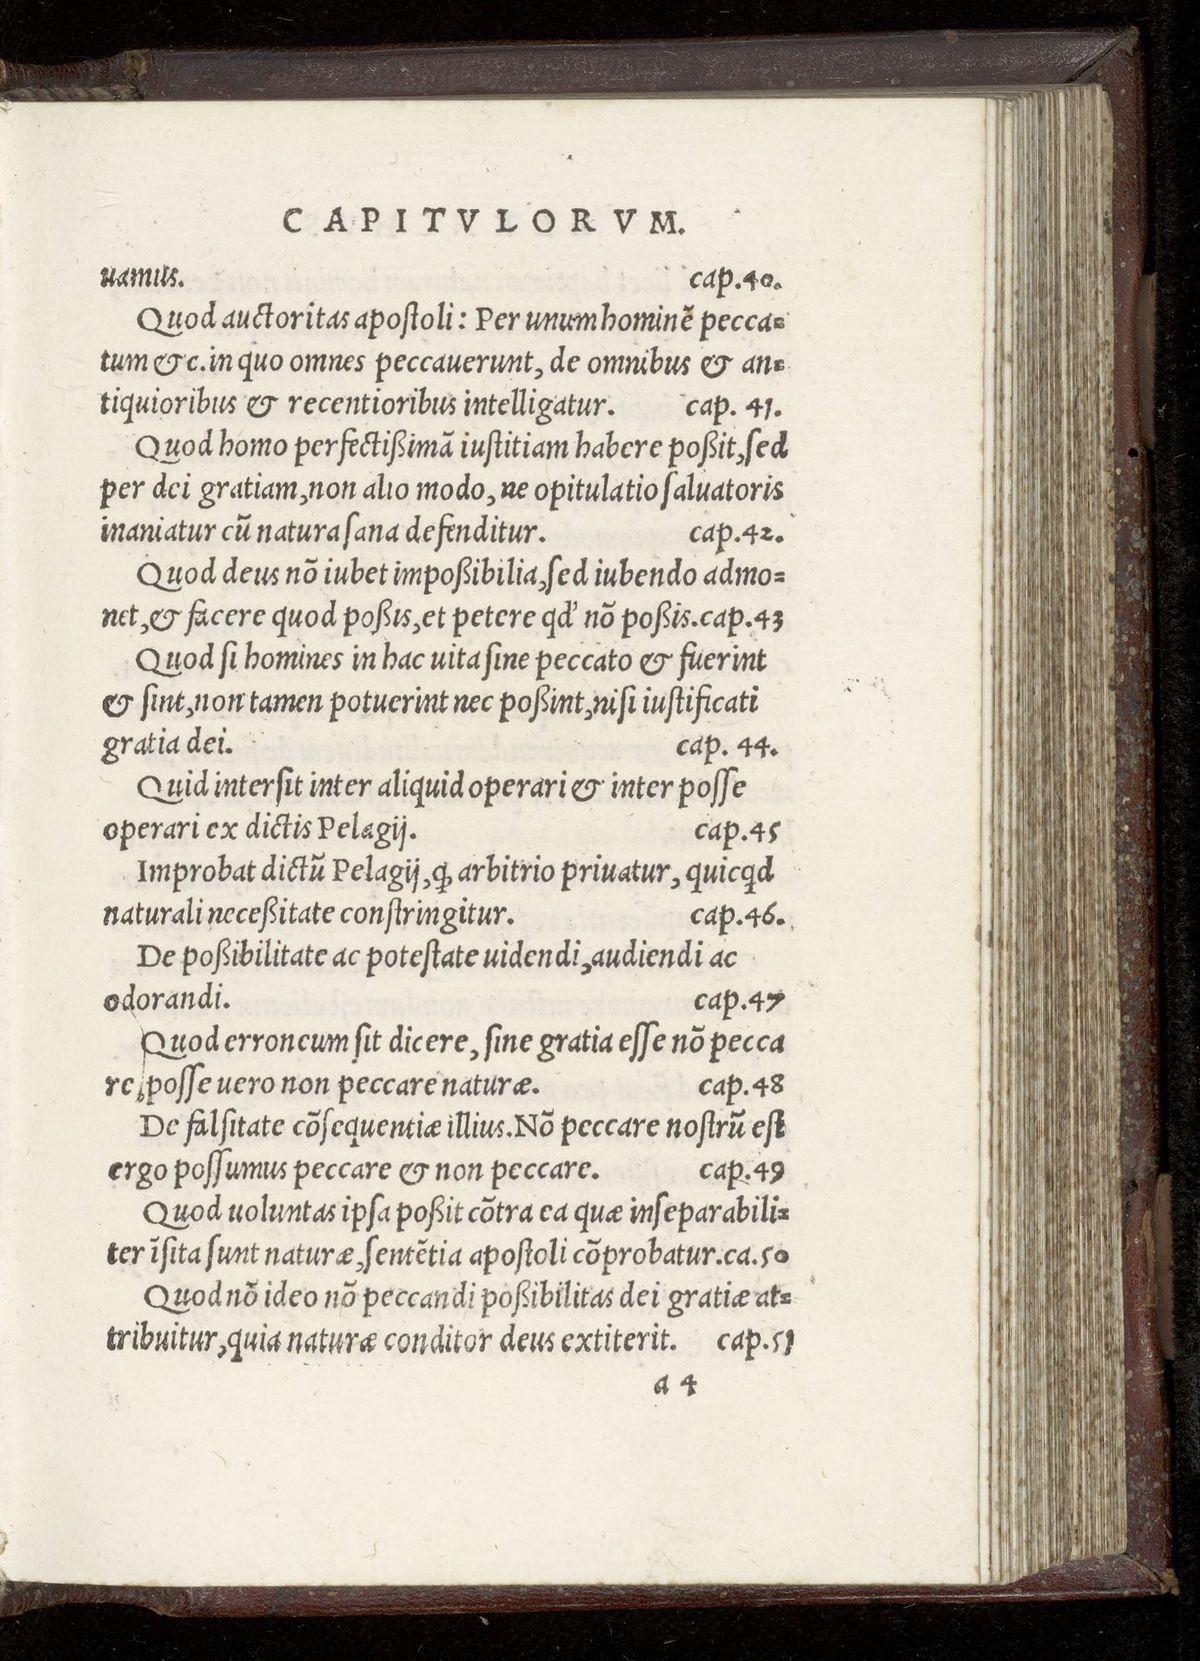 CAPITVLORVM.
uamus. cap.40.
Quod auctoritas apoſtoli: Per unum hominē pecca=
tum &c. in quo omnes peccauerunt, de omnibus & an=
tiquioribus & recentioribus intelligatur. cap. 41.
Quod homo perfectißimā iuſtitiam habere poßit,ſed
per dei gratiam,non alio modo, ne opitulatio ſaluatoris
inaniatur cū natura ſana defenditur. cap.42.
Quod deus nō iubet impoßibilia,ſed iubendo admo=
net,& facere quod poßis,et petere qd' nō poßis.cap.43
Quod ſi homines in hac uita ſine peccato & fuerint
& ſint,non tamen potuerint nec poßint,niſi iuſtificati
gratia dei. cap. 44.
Quid interſit inter aliquid operari & inter poſſe
operari ex dictis Pelagij. cap.45
Improbat dictū Pelagij,ꝙ arbitrio priuatur, quicqd
naturali neceßitate conſtringitur. cap.46.
De poßibilitate ac poteſtate uidendi,audiendi ac
odorandi. cap.47
Quod erroneum ſit dicere, ſine gratia eſſe nō pecca
re,poſſe uero non peccare naturæ. cap.48
De falſitate cōſequentiæ illius.Nō peccare noſtrū eſt
ergo poſſumus peccare & non peccare. cap.49
Quod uoluntas ipſa poßit cōtra ea quæ inſeparabili=
ter īſita ſunt naturæ,ſentētia apoſtoli cōprobatur.ca.50
Quod nō ideo nō peccandi poßibilitas dei gratiæ at=
tribuitur,quia naturæ conditor deus extiterit. cap.51
a 4